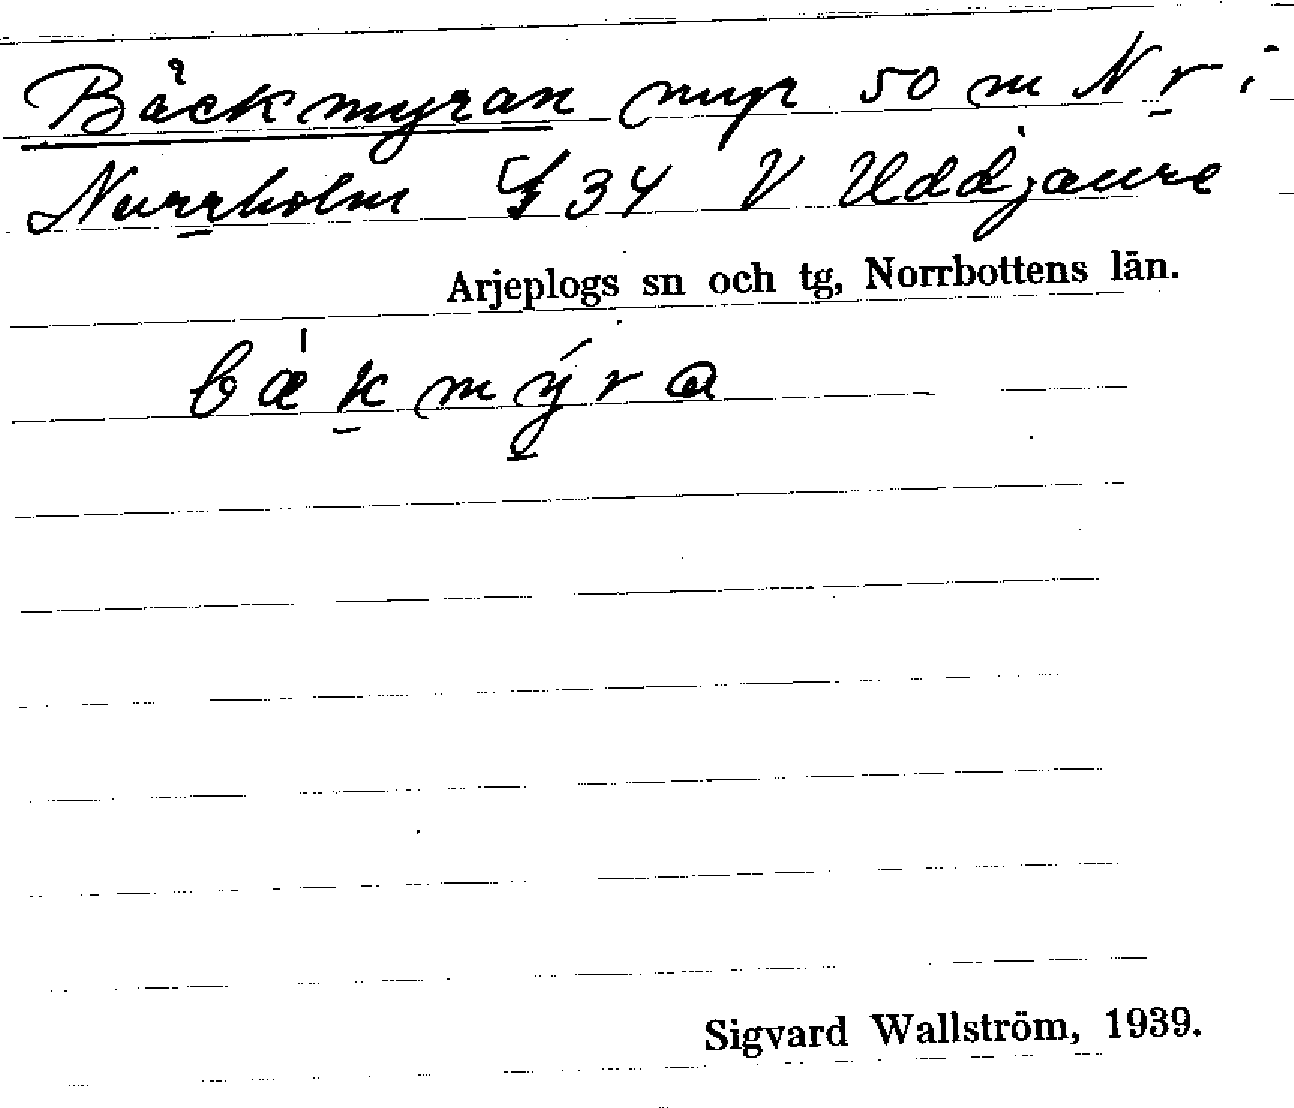 Bäckmyran myr 50 m N r i
Nurrholm § 34 V Uddjaure
Arjeplogs sn och tg, Norrbottens län.
bækmýra
Sigvard Wallström, 1939.